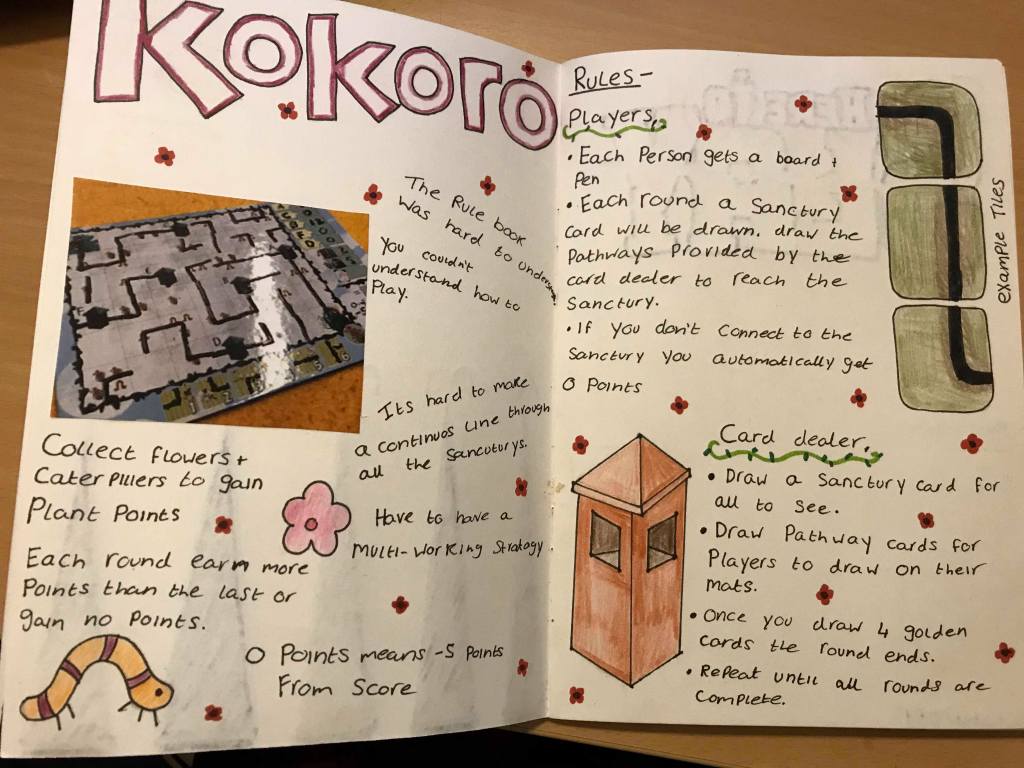 Kokoro
The Rule book
was hard to understand
You couldn't
understand how to
Play.
Its hard to make
a continuos line through
all the Sancuturys.
Collect flowers +
Caterpillers to gain
Plant Points
Have to have a
Multi-working Strategy
Each round earn more
Points than the last or
gain no Points.
0 Points means -5 Points
From Score
Rules-
Players
• Each Person gets a board +
Pen
• Each round a Sanctury
card will be drawn. draw the
Pathways Provided by the
card dealer to reach the
Sanctury.
• If you don't connect to the
Sanctury you automatically get
0 Points
example Tiles
Card dealer.
• Draw a Sanctury card for
all to see.
• Draw Pathway cards for
Players to draw on their
mats.
• Once you draw 4 golden
cards the round ends.
• Repeat until all rounds are
Complete.